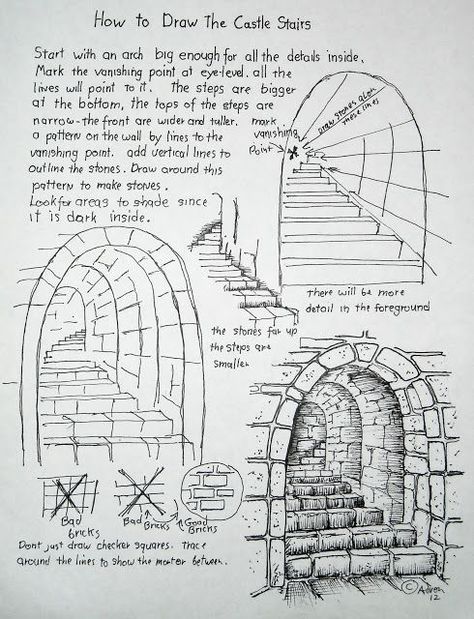 How to Draw The Castle Stairs
Start with an arch big enough for all the details inside.
Mark the vanishing point at eye-level. all the
lives will point to it. The steps are bigger
at the bottom, the tops of the steps are
narrow-the front are wider and taller.
a pattern on the wall by lines to the
vanishing point. add vertical lines to
outline the stones. Draw around this
pattern to make stones.
Look for areas to shade since
it is dark inside.
mark
vanishing
Point
Draw stones along
these lines
There will be more
detail in the foreground
the stones far up
the steps are
smaller
Bad
bricks
Bad Bricks
Good
Bricks
Dont just draw checker squares. trace
around the lines to show the morter between.
© Adron
12